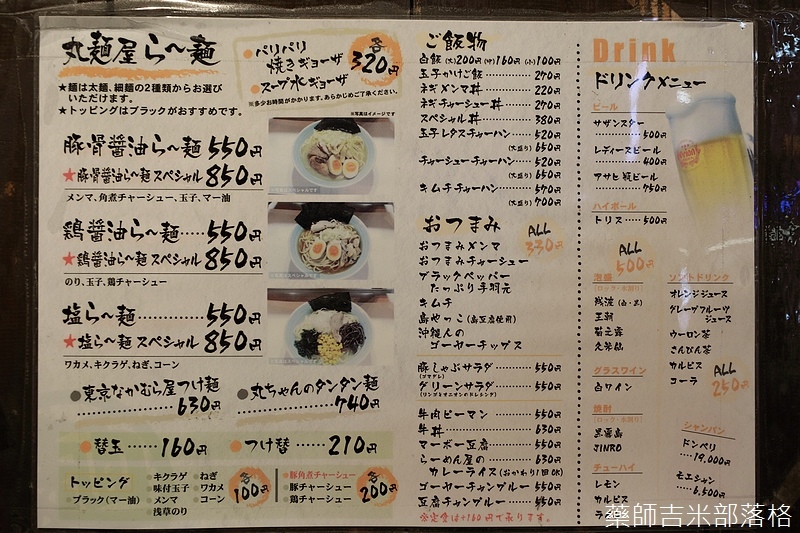 丸麺屋ら〜麺
★麺は太麺、細麺の2種類からお選び
いただけます。
★トッピングはブラックがおすすめです。
パリパリ
焼きギョーザ
スープ水ギョーザ
各320円
※多少お時間がかかります。あらかじめご了承ください。
※写真はイメージです
豚骨醤油ら〜麺 550円
★豚骨醤油ら〜麺スペシャル 850円
メンマ、角煮チャーシュー、玉子、マー油
鶏醤油ら〜麺……550円
★鶏醤油ら〜麺スペシャル 850円
のり、玉子、鶏チャーシュー
塩ら〜麺………550円
★塩ら〜麺 スペシャル 850円
ワカメ、キクラゲ、ねぎ、コーン
●東京なかむら屋つけ麺
……………630円
●丸ちゃんのタンタン麺
……………740円
●替玉……160円
●つけ替……210円
トッピング
・ブラック(マー油)
・キクラゲ
・味付玉子
・メンマ
・浅草のり
・ねぎ
・ワカメ
・コーン
各100円
・豚角煮チャーシュー
・豚チャーシュー
・鶏チャーシュー
各200円
ご飯物
白飯 (大)200円 (中)160円 (小)100円
玉子かけご飯………270円
ネギメンマ丼………220円
ネギチャーシュー丼……270円
スペシャル丼………380円
玉子レタスチャーハン……520円
(大盛り) 650円
チャーシューチャーハン……520円
(大盛り) 650円
キムチチャーハン……570円
(大盛り) 700円
おつまみ
ALL 330円
おつまみメンマ
おつまみチャーシュー
ブラックペッパー
たっぷり手羽元
キムチ
島やっこ(島豆腐使用)
沖縄んの
ゴーヤーチップス
豚しゃぶサラダ………550円
(ゴマダレ)
グリーンサラダ………550円
(リンゴとオニオンのドレシング)
牛肉ピーマン………550円
牛丼………630円
マーボー豆腐………550円
らーめん屋の………630円
カレーライス(おかわり1回OK)
ゴーヤーチャンプルー……550円
豆腐チャンプルー……450円
※定食は+160円で承ります。
Drink
ドリンクメニュー
ビール
サザンスター
……500円
レディースビール
……400円
アサヒ 瓶ビール
……750円
ハイボール
トリス……500円
ALL 500円
泡盛
(ロック・水割り)
残波 (白・黒)
王朝
菊之露
久米仙
グラスワイン
白ワイン
焼酎
(ロック・水割り)
黒霧島
JINRO
チューハイ
レモン
カルピス
ソフトドリンク
オレンジジュース
グレープフルーツ
ジュース
ウーロン茶
さんぴん茶
カルピス
コーラ
ALL 250円
シャンパン
ドンペリ
…19,000円
モエシャン
…6,500円
藥師吉米部落格